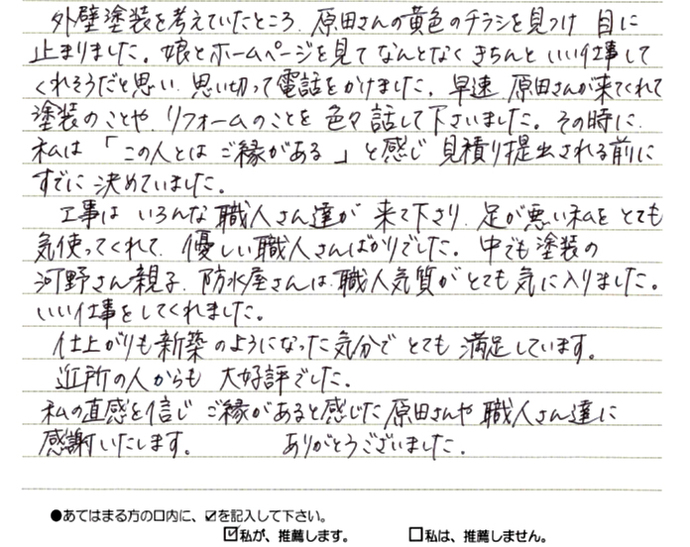 外壁塗装を考えていたところ、原田さんの黄色のチラシを見つけ 目に
止まりました。娘とホームページを見て なんとなく きちんと いい仕事して
くれそうだと思い、思い切って電話をかけました。早速、原田さんが来てくれて
塗装のことや、リフォームのことを 色々 話して下さいました。その時に、
私は 「この人とは ご縁がある」と感じ 見積り提出される前に
すでに 決めていました。
工事は いろんな 職人さん達が 来て下さり、足が悪い私を とても
気使ってくれて、優しい職人さんばかりでした。中でも塗装の
河野さん親子、防水屋さんは、職人気質がとても気に入りました。
いい仕事をしてくれました。
仕上がりも新築のようになった気分で とても 満足しています。
近所の人からも 大好評でした。
私の直感を信じ ご縁があると感じた 原田さんや 職人さん達に
感謝いたします。 ありがとうございました。
●あてはまる方の口内に、☑を記入して下さい。
☑私が、推薦します。 □私は、推薦しません。